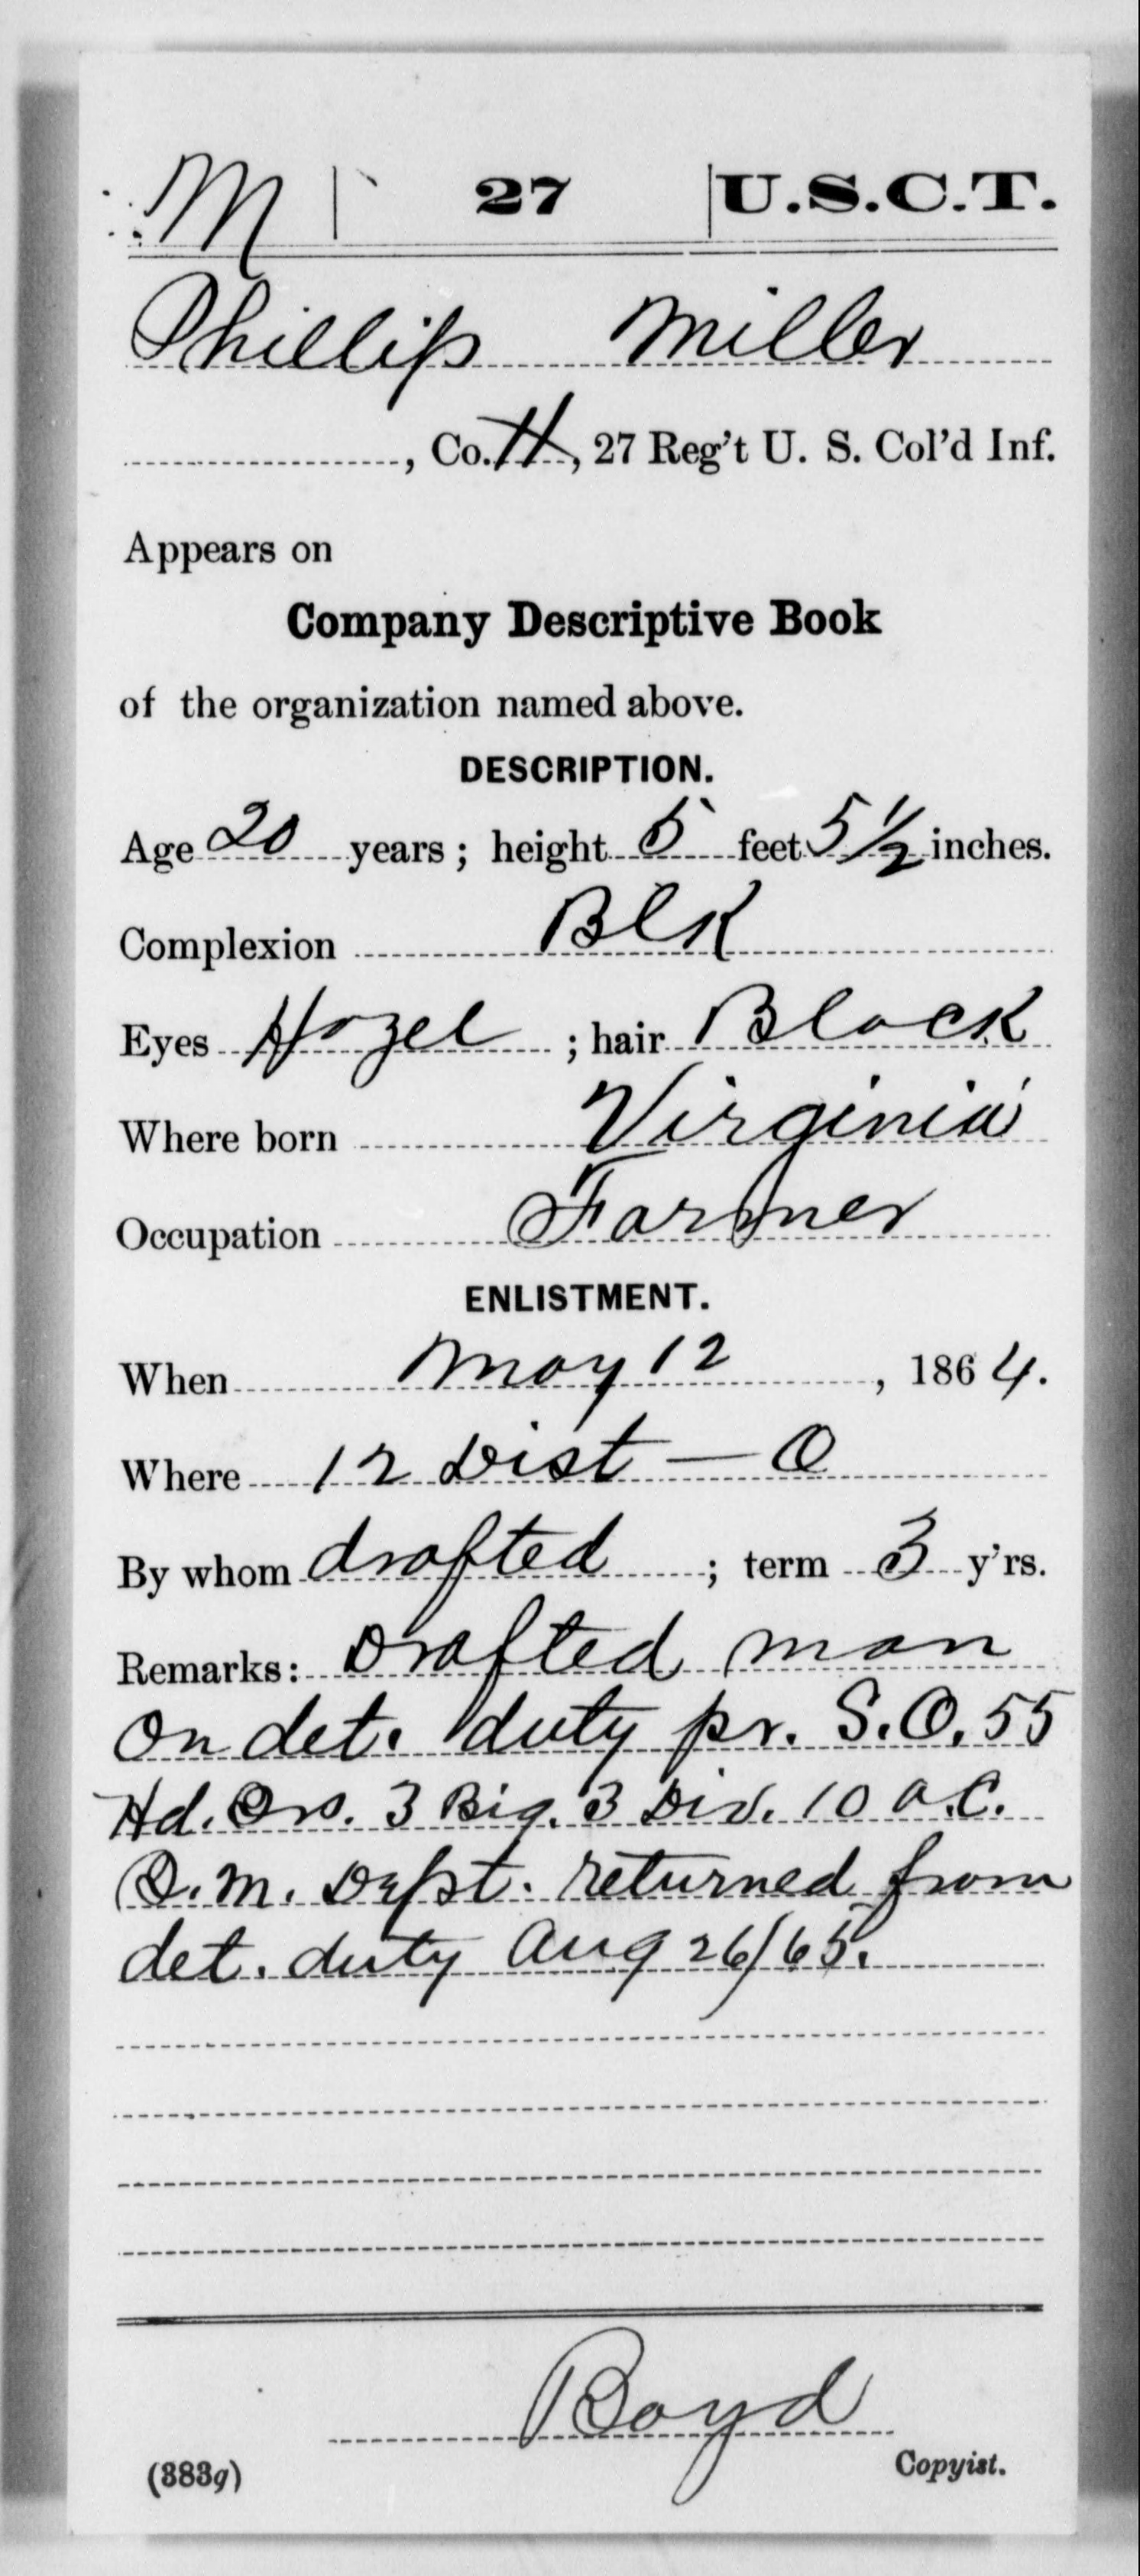 M 27 U.S.C.T.
Phillip Miller
, Co. H, 27 Reg't U. S. Col'd Inf.
Appears on
Company Descriptive Book
of the organization named above.
DESCRIPTION.
Age 20 years; height 5 feet 5 1/2 inches.
Complexion Blk
Eyes Hazel; hair Black
Where born Virginia
Occupation Farmer
ENLISTMENT.
When May 12, 1864.
Where 12 Dist — O
By whom drafted; term 3 y'rs.
Remarks: Drafted man
On det. duty pr. S.O. 55
Hd. Qrs. 3 Big. 3 Div. 10 A.C.
Q.M. Dept. returned from
det. duty Aug 26/65.
Boyd
(383g) Copyist.